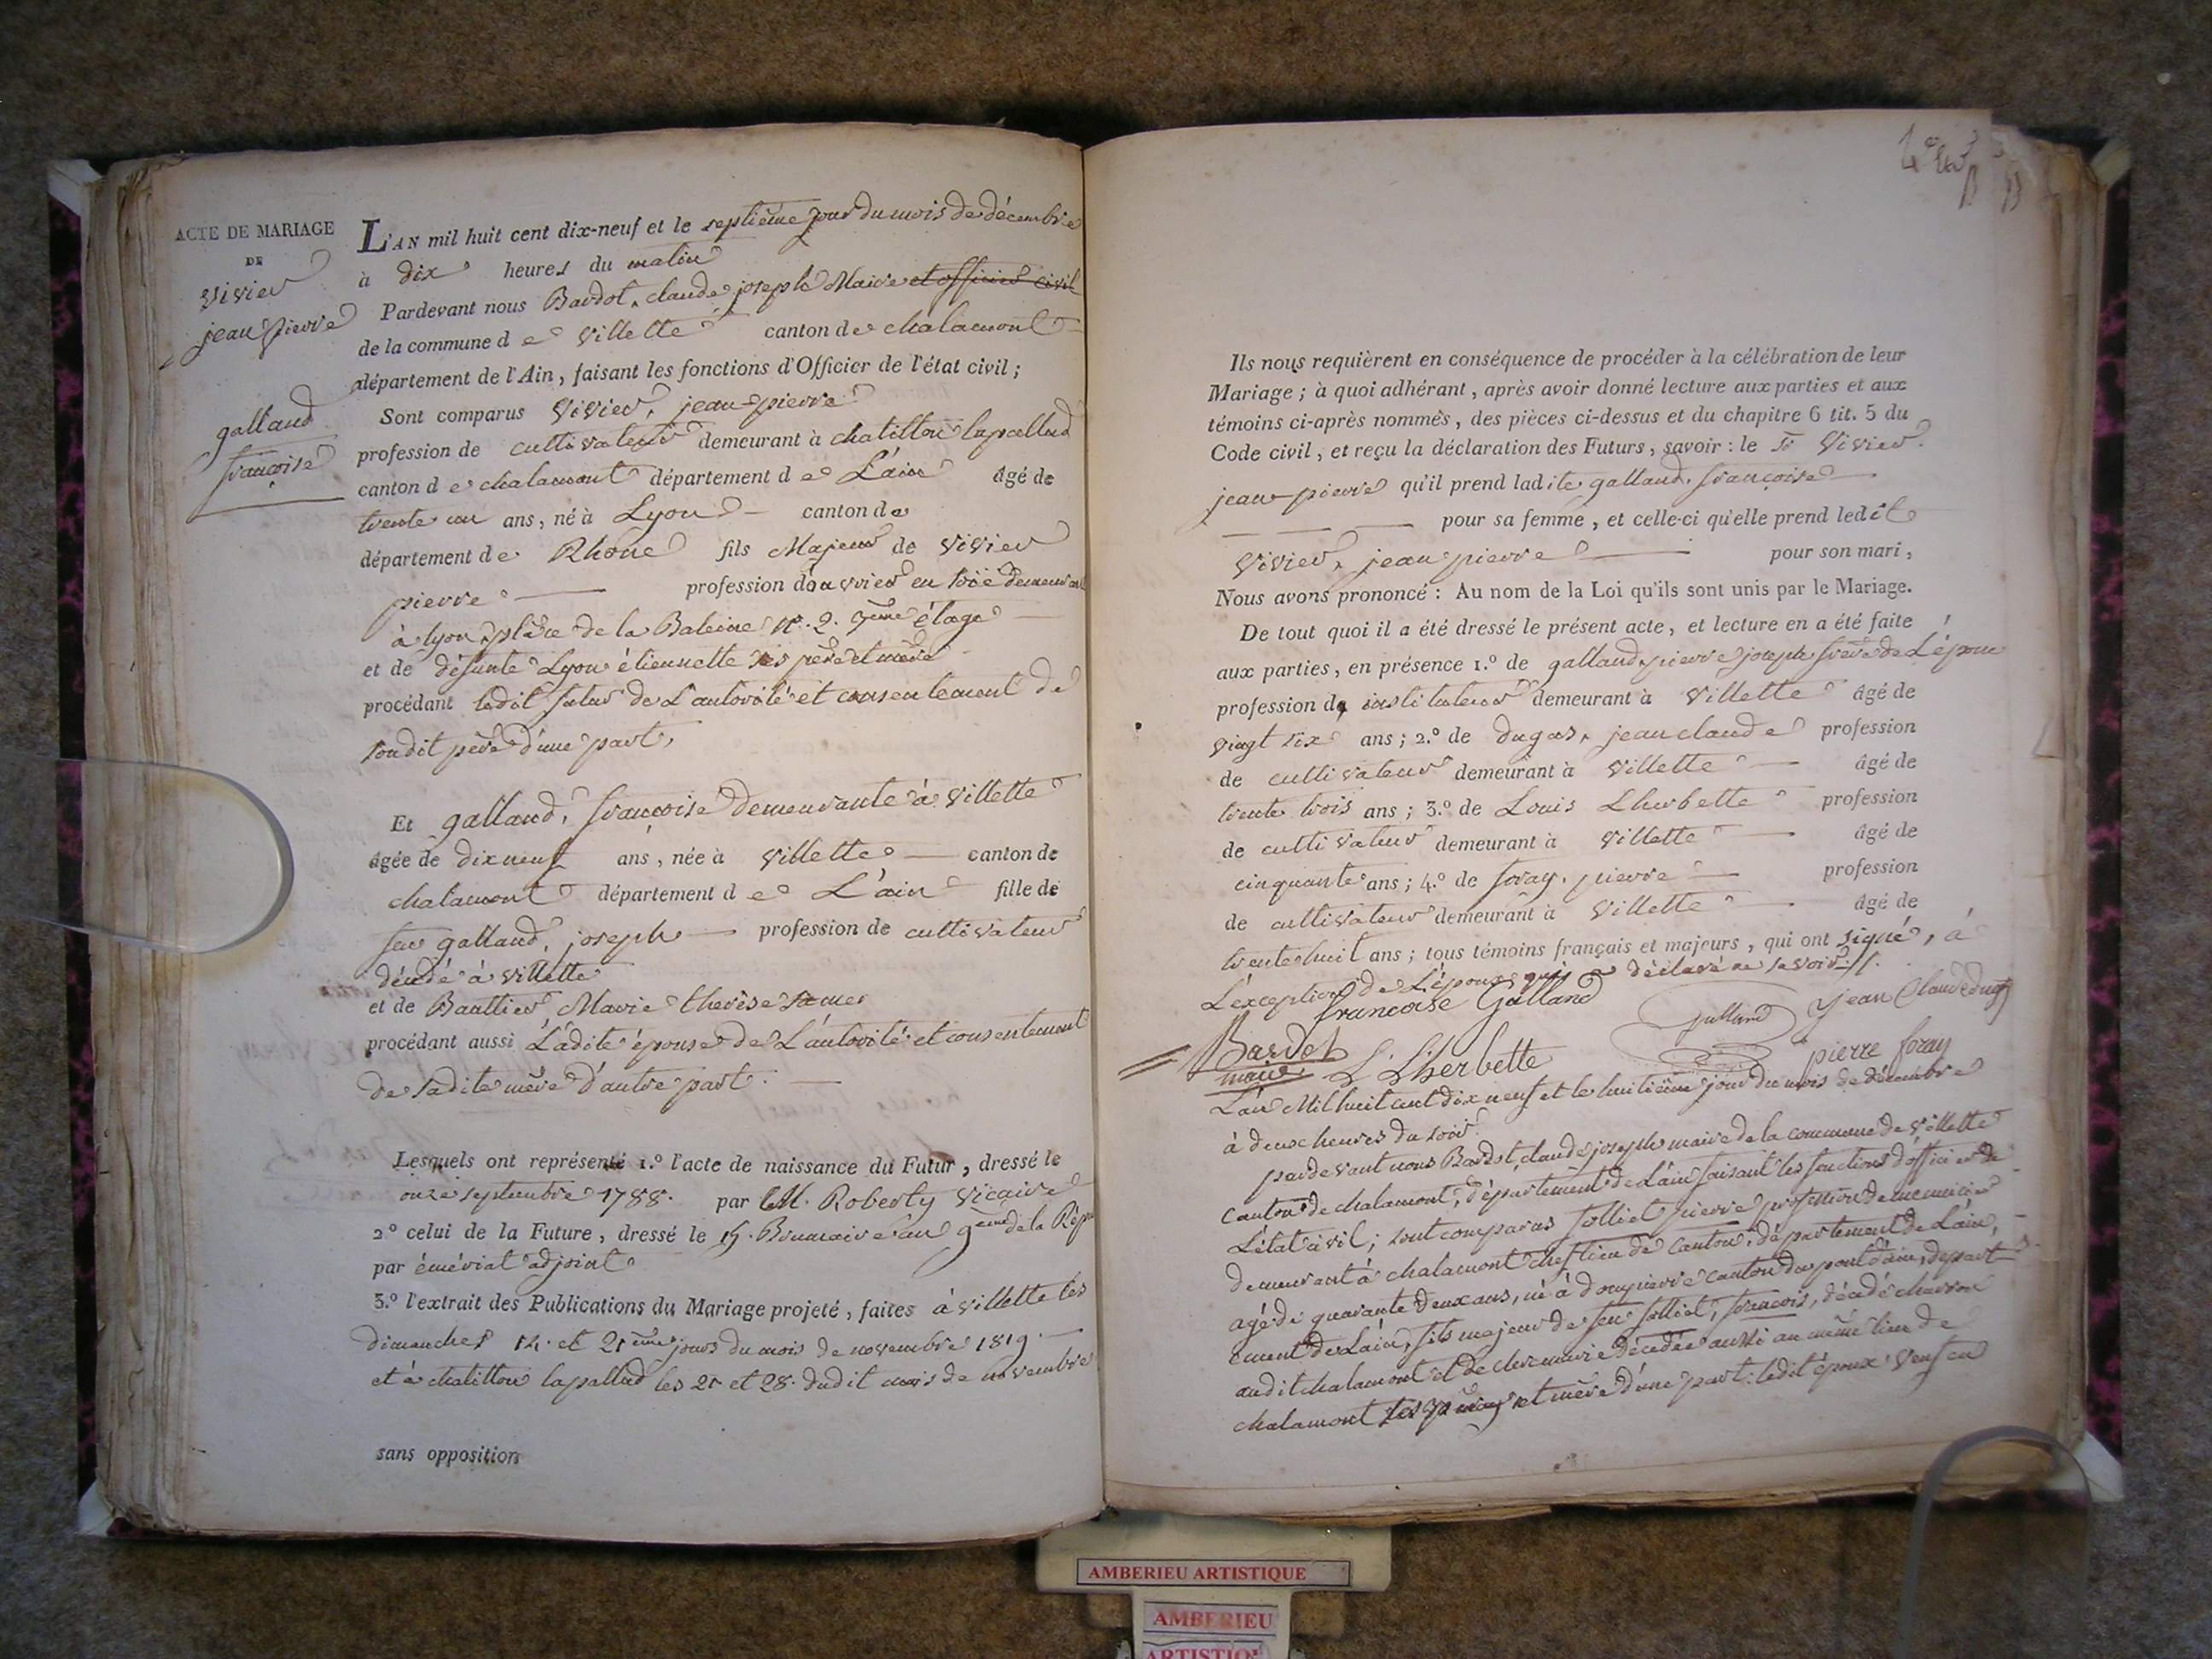 ACTE DE MARIAGE
DE
Vivier
jean pierre
galland
françoise
L'AN mil huit cent dix-neuf et le septième jour du mois de décembre
à dix heures du matin
Pardevant nous Bardot, claude joseph Maire et officier civil
de la commune de Villette canton de chalamont
département de l'Ain, faisant les fonctions d'Officier de l'état civil;
Sont comparus Vivier, jean pierre
profession de cultivateur demeurant à chatillon lapallud
canton de chalamont département de L'ain âgé de
trente un ans, né à Lyon canton de
département de Rhône fils Majeur de Vivier
pierre profession d'ouvrier en soie demeurant
à lyon place de la Baleine N°. 2. étage
et de défunte Lyon étiennette ses père et mère
procédant ledit futur de L'autorité et consentement de
sondit père d'une part,
Et galland, françoise demeurante à Villette
âgée de dix neuf ans, née à Villette canton de
chalamont département de L'ain fille de
feu galland, joseph profession de cultivateur
décédé à villette
et de Bauttier Marie therèse sa mer
procédant aussi Ladite épouse de L'autorité et consentement
de sadite mère d'autre part.
Lesquels ont représenté 1.º l'acte de naissance du Futur, dressé le
onze septembre 1788. par M. Roberty Vicaire
2º celui de la Future, dressé le 15. Brumaire an 9ème de la Rép
par émériat adjoint
3.º l'extrait des Publications du Mariage projeté, faites à villette les
dimanches 14. et 21ème jours du mois de novembre 1819.
et à chatillon lapallud les 21 et 28. dudit mois de novembre
sans opposition
Ils nous requièrent en conséquence de procéder à la célébration de leur
Mariage; à quoi adhérant, après avoir donné lecture aux parties et aux
témoins ci-après nommés, des pièces ci-dessus et du chapitre 6 tit. 5 du
Code civil, et reçu la déclaration des Futurs, savoir: le Sr Vivier
jean pierre qu'il prend ladite galland, françoise
pour sa femme, et celle-ci qu'elle prend ledit
Vivier, jean pierre pour son mari,
Nous avons prononcé: Au nom de la Loi qu'ils sont unis par le Mariage.
De tout quoi il a été dressé le présent acte, et lecture en a été faite
aux parties, en présence 1.º de galland, pierre joseph frère de L'épouse
profession d' instituteur demeurant à Villette âgé de
vingt six ans; 2.º de dugas, jean claude profession
de cultivateur demeurant à Villette âgé de
trente trois ans; 3.º de Louis Lherbette profession
de cultivateur demeurant à Villette âgé de
cinquante ans; 4.º de foray, pierre profession
de cultivateur demeurant à Villette âgé de
trente huit ans; tous témoins français et majeurs, qui ont signé, à
L'exception de L'époux qui a déclaré ne savoir.
francoise Galland
galland jean Claude dugas
Bardot
maire
L. Lherbette pierre foray
L'an Mil huit cent dix neuf et le huitième jour du mois de décembre
à deux heures du soir
pardevant nous Bardot, claude joseph maire de la commune de villette
canton de chalamont, département de L'ain faisant les fonctions d'officier de
L'état civil; sont comparus folliet pierre profession de menuisier
demeurant à chalamont chef lieu de canton, département de L'ain,
agé de quarante deux ans, né à dompierre canton du pont d'ain, départ-
ement de L'ain, fils majeur de feu folliet, françois, décédé charron
audit chalamont et de clerc marie décédée aussi au même lieu de
chalamont ses père et mère d'une part: ledit époux veuf en
AMBERIEU ARTISTIQUE
AMBERIEU
ARTISTIQUE